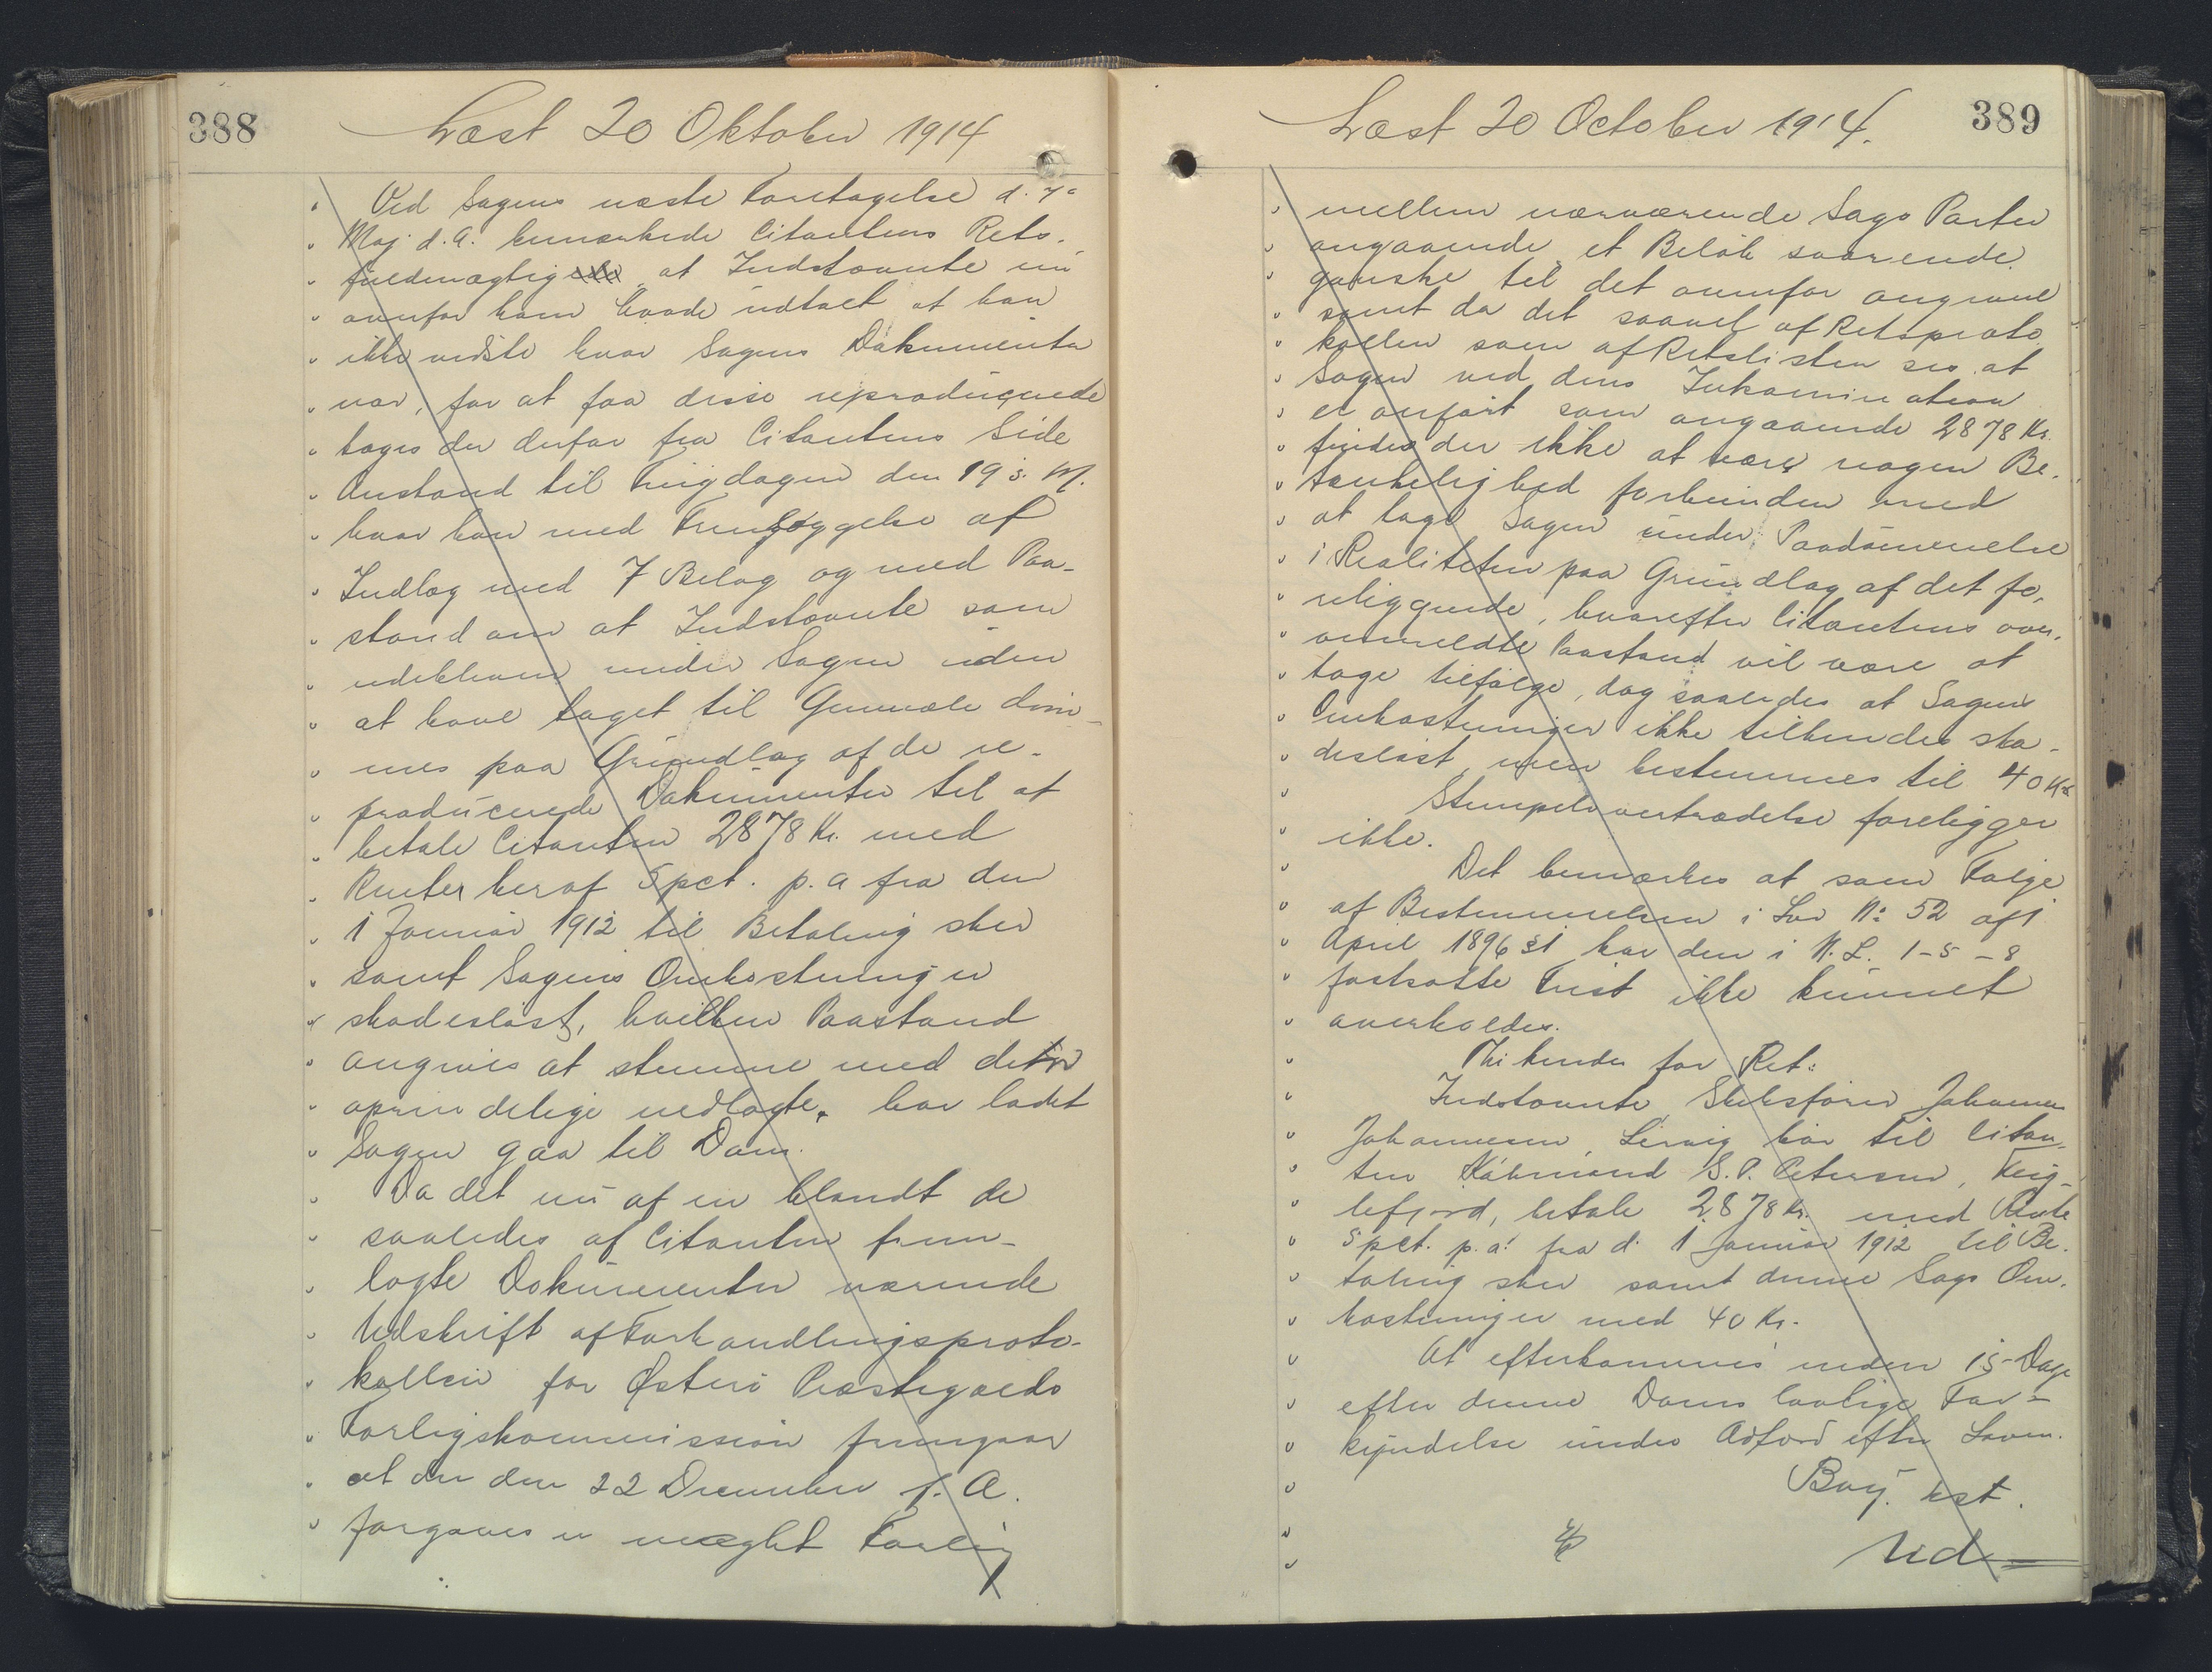 388
Læst 20 Oktober 1914
Ved Sagens næste Foretagelse d. 7de
Maj d. A. bemærkede Citantens Rets-
fuldmægtig at Indstævnte nu
overfor ham havde udtalt at han
ikke vidste hvor Sagens Dokumenter
var, for at faa disse reproducerede
toges der derfor fra Citantens Side
Anstand til Tingdagen den 19 s. M.
hvor han med Fremlæggelse af
Indlæg med 7 Bilag og med Paa-
stand om at Indstævnte som
udebleven under Sagen uden
at have taget til Genmæle døm-
mes paa Grundlag af de re-
producerede Dokumenter til at
betale Citanten 2878 Kr. med
Renter heraf 5 pct. p. a fra den
1 Januar 1912 til Betaling sker
samt Sagens Omkostninger
skadesløst, hvilken Paastand
angives at stemme med den
oprindelige nedlagte, har ladet
Sagen gaa til Dom.
Da det nu af en blandt de
saaledes af Citanten frem-
lagte Dokumenter værende
Udskrift af Forhandlingsproto-
kollen for Østerø Præstegælds
Forligskommission fremgaar
at der den 22 December f. A.
forgæves er mæglet Forlig
389
Læst 20 October 1914.
mellem nærværende Sags Parter
angaaende et Beløb svarende
ganske til det ovenfor angivne
samt da det saavel af Retsproto
kollen som af Retslisten ses at
Sagen ved dens Inkamination
er anført som angaaende 2878 Kr.
findes der ikke at være nogen Be-
tænkelighed forbunden med
at tage Sagen under Paadømmelse
i Realiteten paa Grundlag af det fo-
religgende, hvorefter Citantens oven-
ommeldte Paastand vil være at
tage tilfølge, dog saaledes at Sagens
Omkostninger ikke tilkendes ska-
desløst, men bestemmes til 40 Kr.
Stempelovertrædelse foreligger
ikke.
Det bemærkes at som Følge
af Bestemmelsen i Lov No 52 af 1
April 1896 § 1 har den i N. L. 1-5-8
fastsatte Frist ikke kunnet
overholdes.
Thi kendes for Ret:
Indstævnte, Skibsfører Johannes
Johannesen, Lervig bør til Citan-
ten Købmand S. P. Petersen, Fug-
lefjord, betale 2878 Kr. med Rente
5 pct. p. a. fra d. 1 Januar 1912 til Be-
taling sker samt denne Sags Om-
kostninger med 40 Kr.
At efterkommes inden 15 Dage
efter denne Doms lovlige For-
kyndelse under Adfærd efter Loven.
Bøy. kst.
Ud